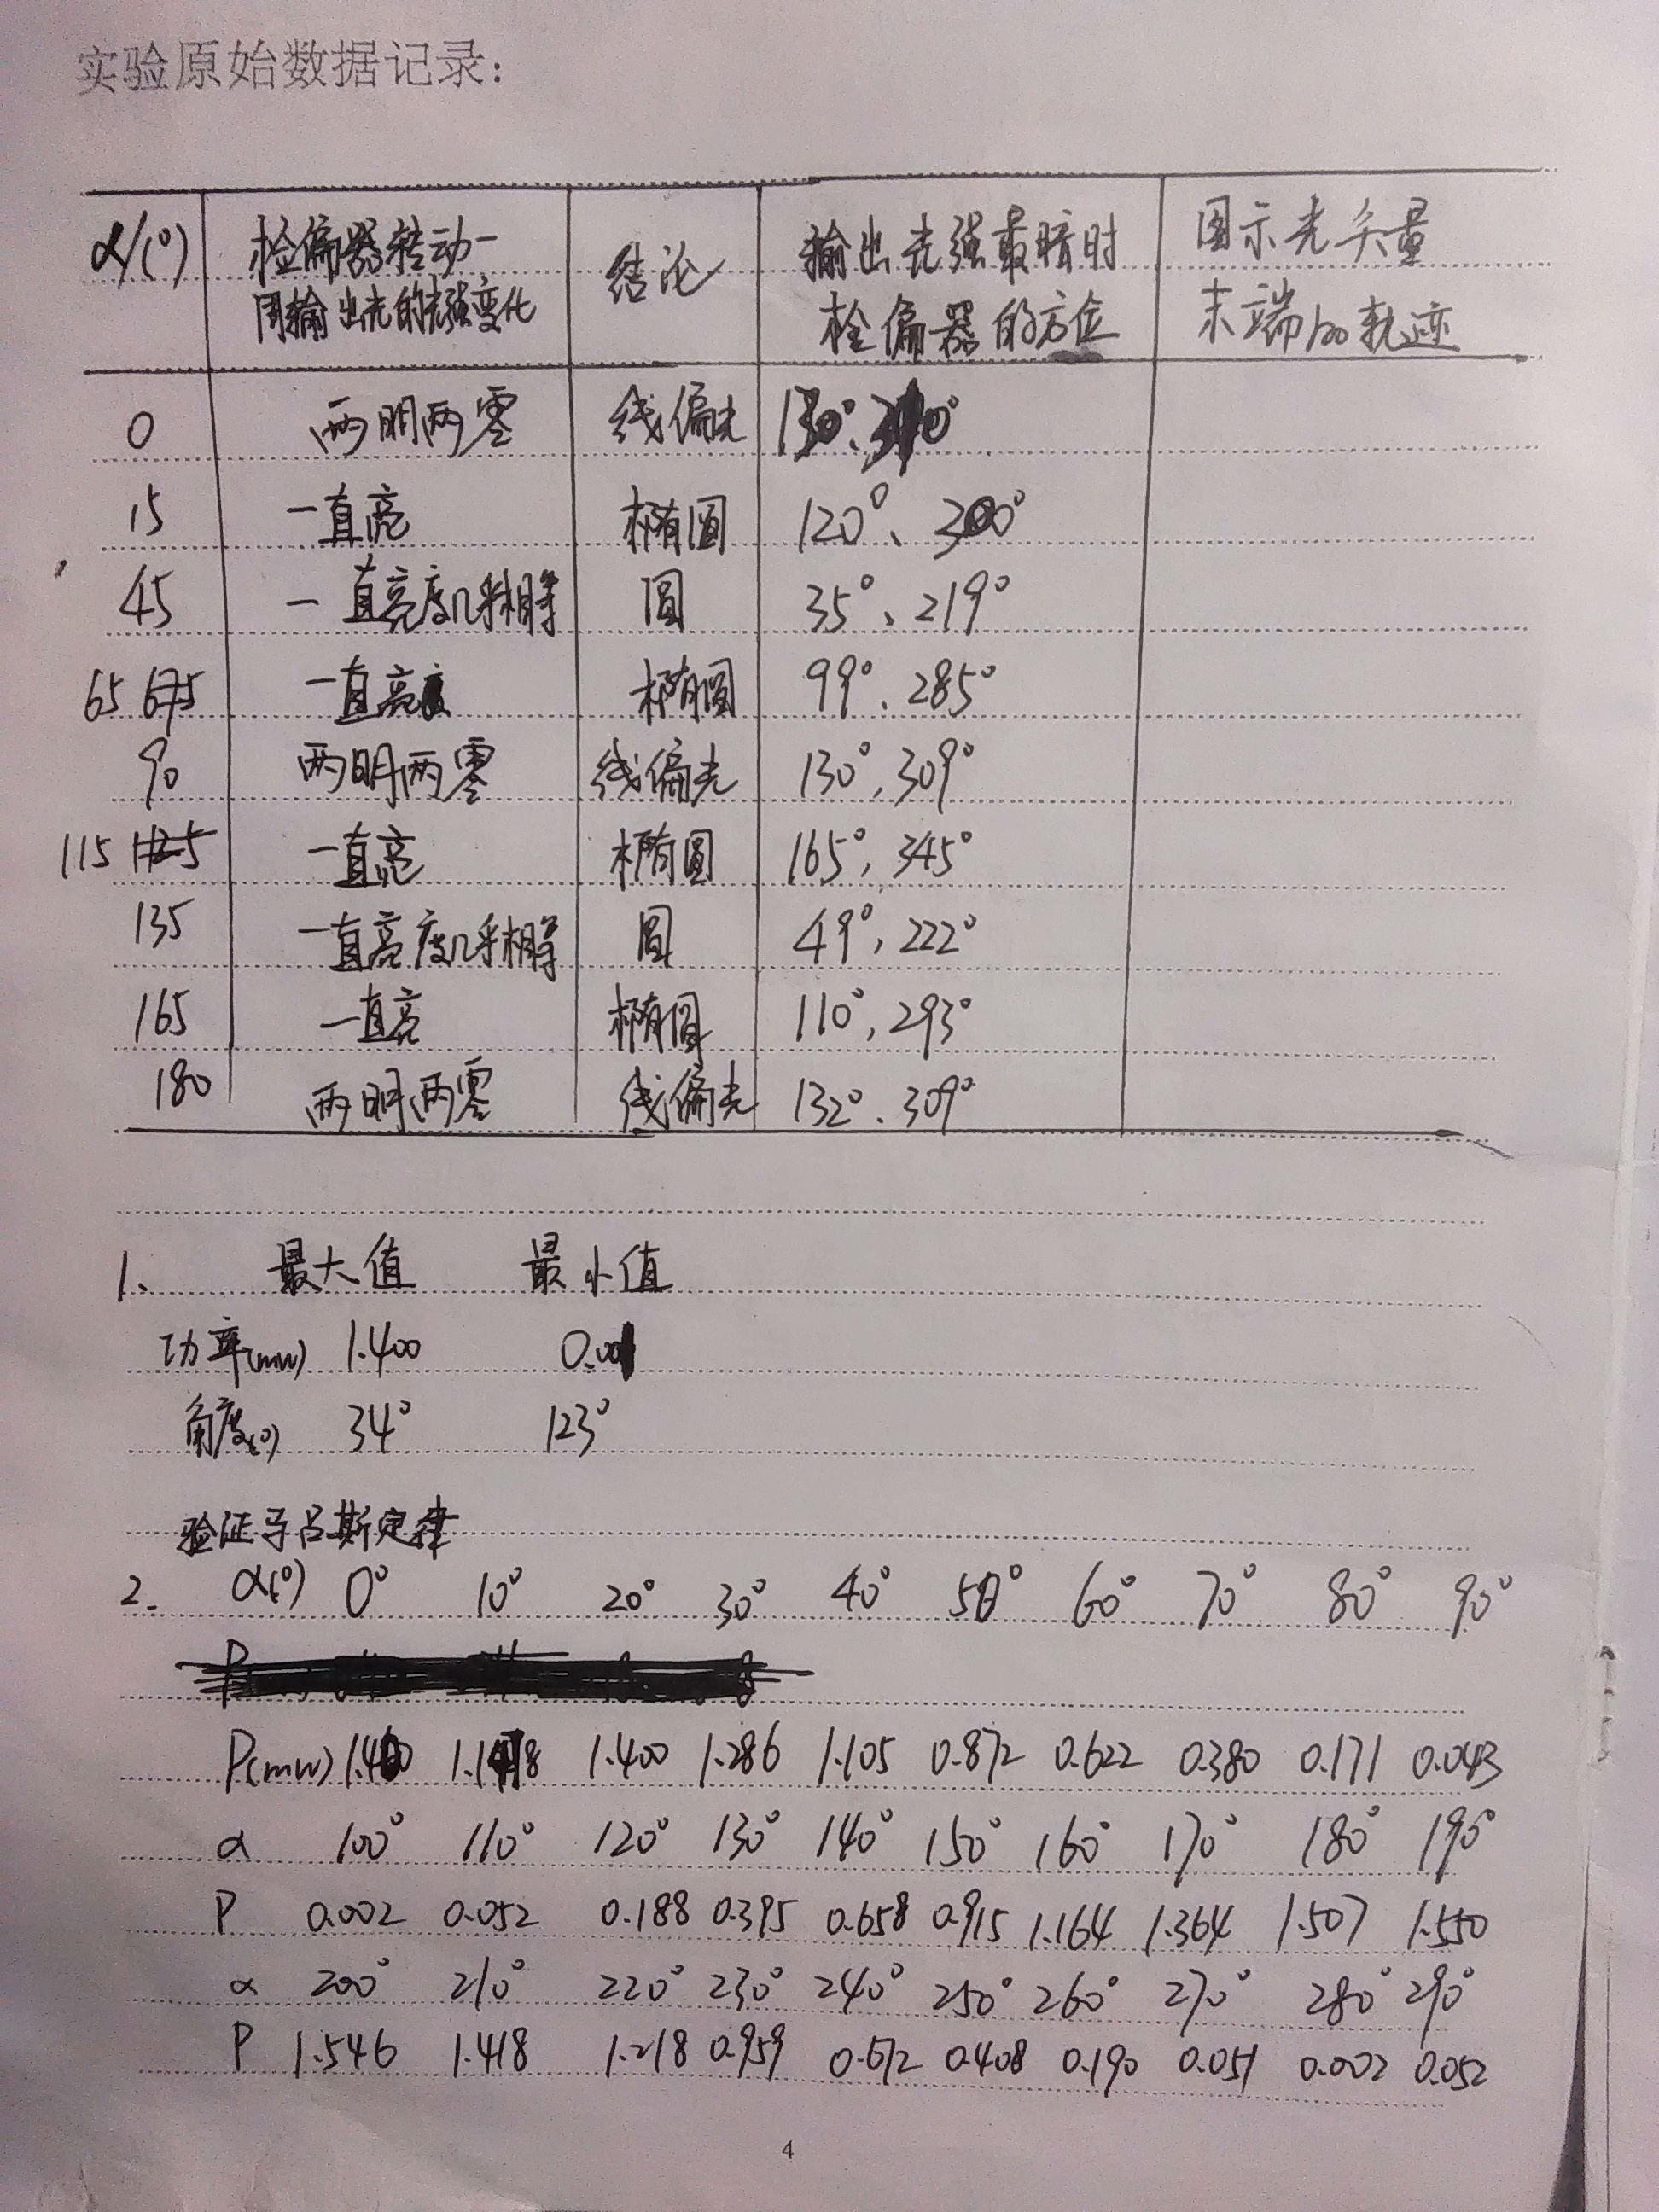 实验原始数据记录:
α/(°) 检偏器转动一周输出光的光强变化 结论 输出光强最暗时栓偏器的方位 图示光矢量末端的轨迹
0 两明两零 线偏光 130°、310°
15 一直亮 椭圆 120°、300°
45 一直亮度几乎相等 圆 35°、219°
65 一直亮 椭圆 99°、285°
90 两明两零 线偏光 130°,309°
115 一直亮 椭圆 165°,345°
135 一直亮度几乎相等 圆 49°,222°
165 一直亮 椭圆 110°,293°
180 两明两零 线偏光 132°、309°
1、 最大值 最小值
功率(mw) 1.400 0.001
角度(°) 34° 123°
验证马吕斯定律
2. α(°) 0° 10° 20° 30° 40° 50° 60° 70° 80° 90°
P(mw) 1.400 1.400 1.286 1.105 0.872 0.622 0.380 0.171 0.043
α 100° 110° 120° 130° 140° 150° 160° 170° 180° 190°
P 0.002 0.052 0.188 0.395 0.658 0.915 1.164 1.364 1.507 1.550
α 200° 210° 220° 230° 240° 250° 260° 270° 280° 290°
P 1.546 1.418 1.218 0.959 0.672 0.408 0.190 0.051 0.002 0.052
4